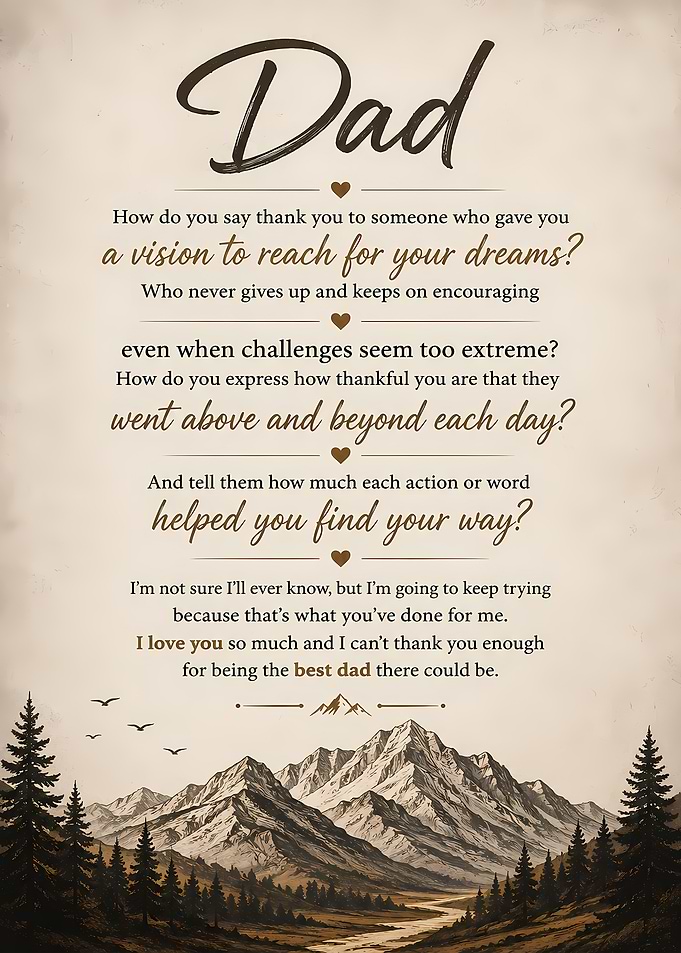 Dad
How do you say thank you to someone who gave you
a vision to reach for your dreams?
Who never gives up and keeps on encouraging
even when challenges seem too extreme?
How do you express how thankful you are that they
went above and beyond each day?
And tell them how much each action or word
helped you find your way?
I'm not sure I'll ever know, but I'm going to keep trying
because that's what you've done for me.
I love you so much and I can't thank you enough
for being the best dad there could be.